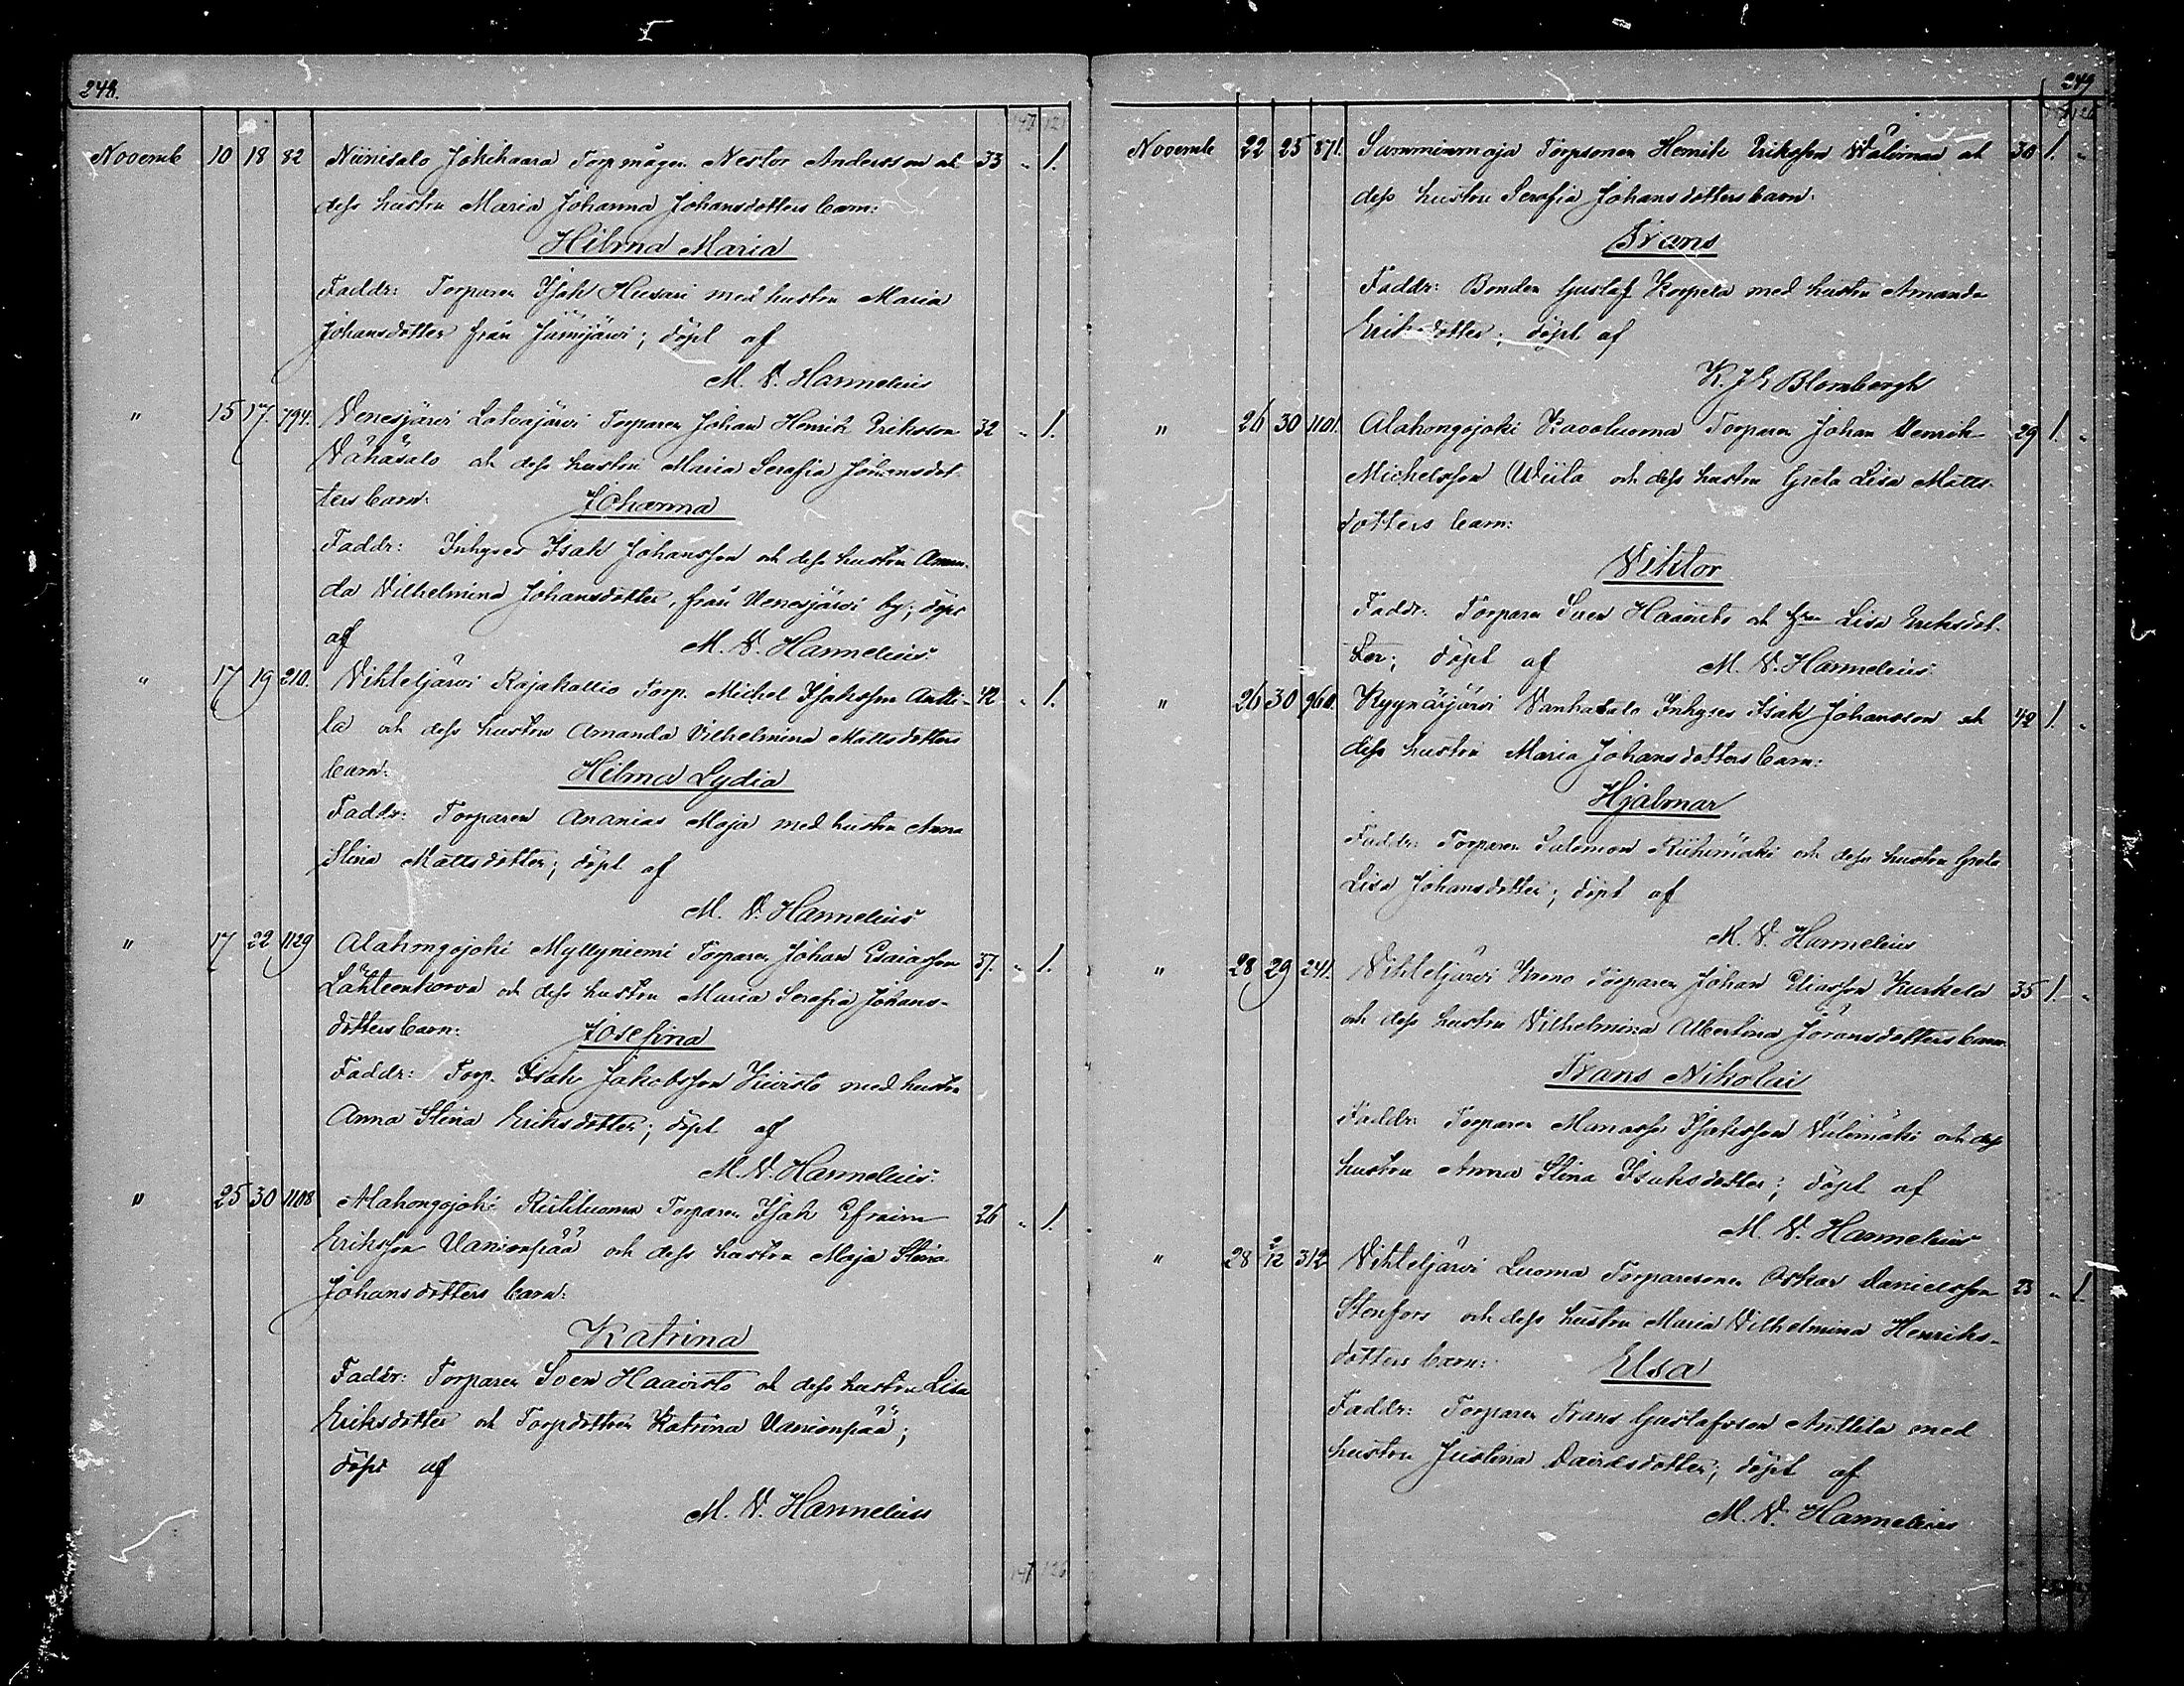 248.
147 121
Novemb 10 18 82 Niinisalo Jokihaara Torpmågen Nestor Andersson och 33 " 1.
dess hustru Maria Johanna Johansdotters barn:
Hilma Maria
Faddr: Torparen Isak Husari med hustru Maria
Johansdotter från Jämijärvi; döpt af
M. V. Hannelius
" 15 17. 794. Venesjärvi Latvajärvi Torparen Johan Henrik Eriksson 32 " 1.
Vähäsalo och dess hustru Maria Serafia Johansdot-
ters barn: Johanna
Faddr: Inhyses Isak Johansson och dess hustru Aman-
da Vilhelmina Johansdotter, från Venesjärvi by; döpt
af M. V. Hannelius.
" 17 19 210. Vihteljärvi Rajakallio Torp. Michel Isaksson Antti- 42 " 1.
la och dess hustru Amanda Vilhelmina Mattsdotters
barn: Hilma Lydia
Faddr: Torparen Ananias Maja med hustru Anna
Stina Mattsdotter; döpt af
M. V. Hannelius
" 17 22 1129 Alahongojoki Myllyniemi Torparen Johan Esaiasson 37. " 1.
Lähteenkorva och dess hustru Maria Serafia Johans-
dotters barn: Josefina
Faddr: Torp. Isak Jakobsson Kivistö med hustru
Anna Stina Eriksdotter; döpt af
M. V. Hannelius.
" 25 30 1108 Alahongojoki Riitiluoma Torparen Isak Efraim 26 " 1.
Eriksson Vanionpää och dess hustru Maja Stina
Johansdotters barn:
Katrina
Faddr: Torparen Sven Haavisto och dess hustru Lisa
Eriksdotter och Torpdottren Katrina Vanionpää;
döpt af
M. V. Hannelius
147 126
249
147 126
Novemb 22 25 871. Summinmaja Torpsonen Henrik Eriksson Välimaa och 30 1. "
dess hustru Serafia Johansdotters barn:
Frans
Faddr: Bonden Gustaf Korpela med hustru Amanda
Eriksdotter; döpt af
K. J. E. Blombergh
" 26 30 1101. Alahongojoki Kavoluoma Torparen Johan Henrik 29 1. "
Michelsson Wiila och dess hustru Greta Lisa Matts-
dotters barn:
Viktor
Faddr: Torparen Sven Haavisto och hru Lisa Eriksdot-
ter; döpt af M. V. Hannelius.
" 26 30 960. Kyynärjärvi Vanhasalo Inhyses Isak Johansson och 42 1. "
dess hustru Maria Johansdotters barn:
Hjalmar
Faddr: Torparen Salomon Riihimäki och dess hustru Greta
Lisa Johansdotter; döpt af
M. V. Hannelius
" 28 29 241. Vihteljärvi Torparen Johan Eliasson Kurkela 35 1. "
och dess hustru Vilhelmina Albertina Göransdotters barn.
Frans Nikolai
Faddr: Torparen Manasse Isaksson Välimäki och dess
hustru Anna Stina Isaksdotter; döpt af
M. V. Hannelius
" 28 2/12 312 Vihteljärvi Luoma Torparesonen Oskar Danielsson 23 " 1.
Stenfors och dess hustru Maria Vilhelmina Henriks-
dotters barn: Elsa
Faddr: Torparen Frans Gustafsson Anttila med
hustru Justina Davidsdotter; döpt af
M. V. Hannelius